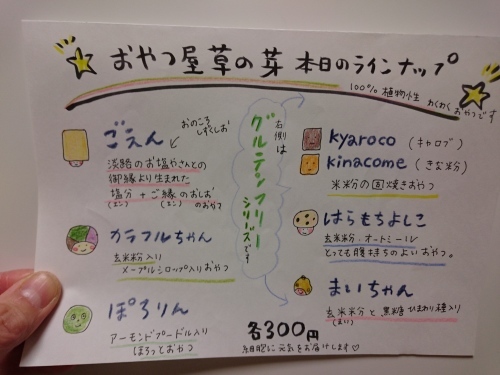 おやつ屋 草の芽 本日のラインナップ
100% 植物性 わくわくおやつです
ごえん
おのころ
しずくしお
淡路のお塩やさんとの
御縁より生まれた
塩分+ご縁のおしお
(エン) (エン) のおやつ
カラフルちゃん
玄米粉入り
メープルシロップ入りおやつ
ぽろりん
アーモンドプードル入り
ほろっとおやつ
右側は
グルテンフリー
シリーズです
kyaroco (キャロブ)
kinacome (きな粉)
米粉の固焼きおやつ
はらもちよしこ
玄米粉・オートミール
とっても腹持ちのよいおやつ。
まいちゃん
玄米米粉と黒糖 ひまわり種入り
(まい)
各300円
細胞に元気をお届けします♡